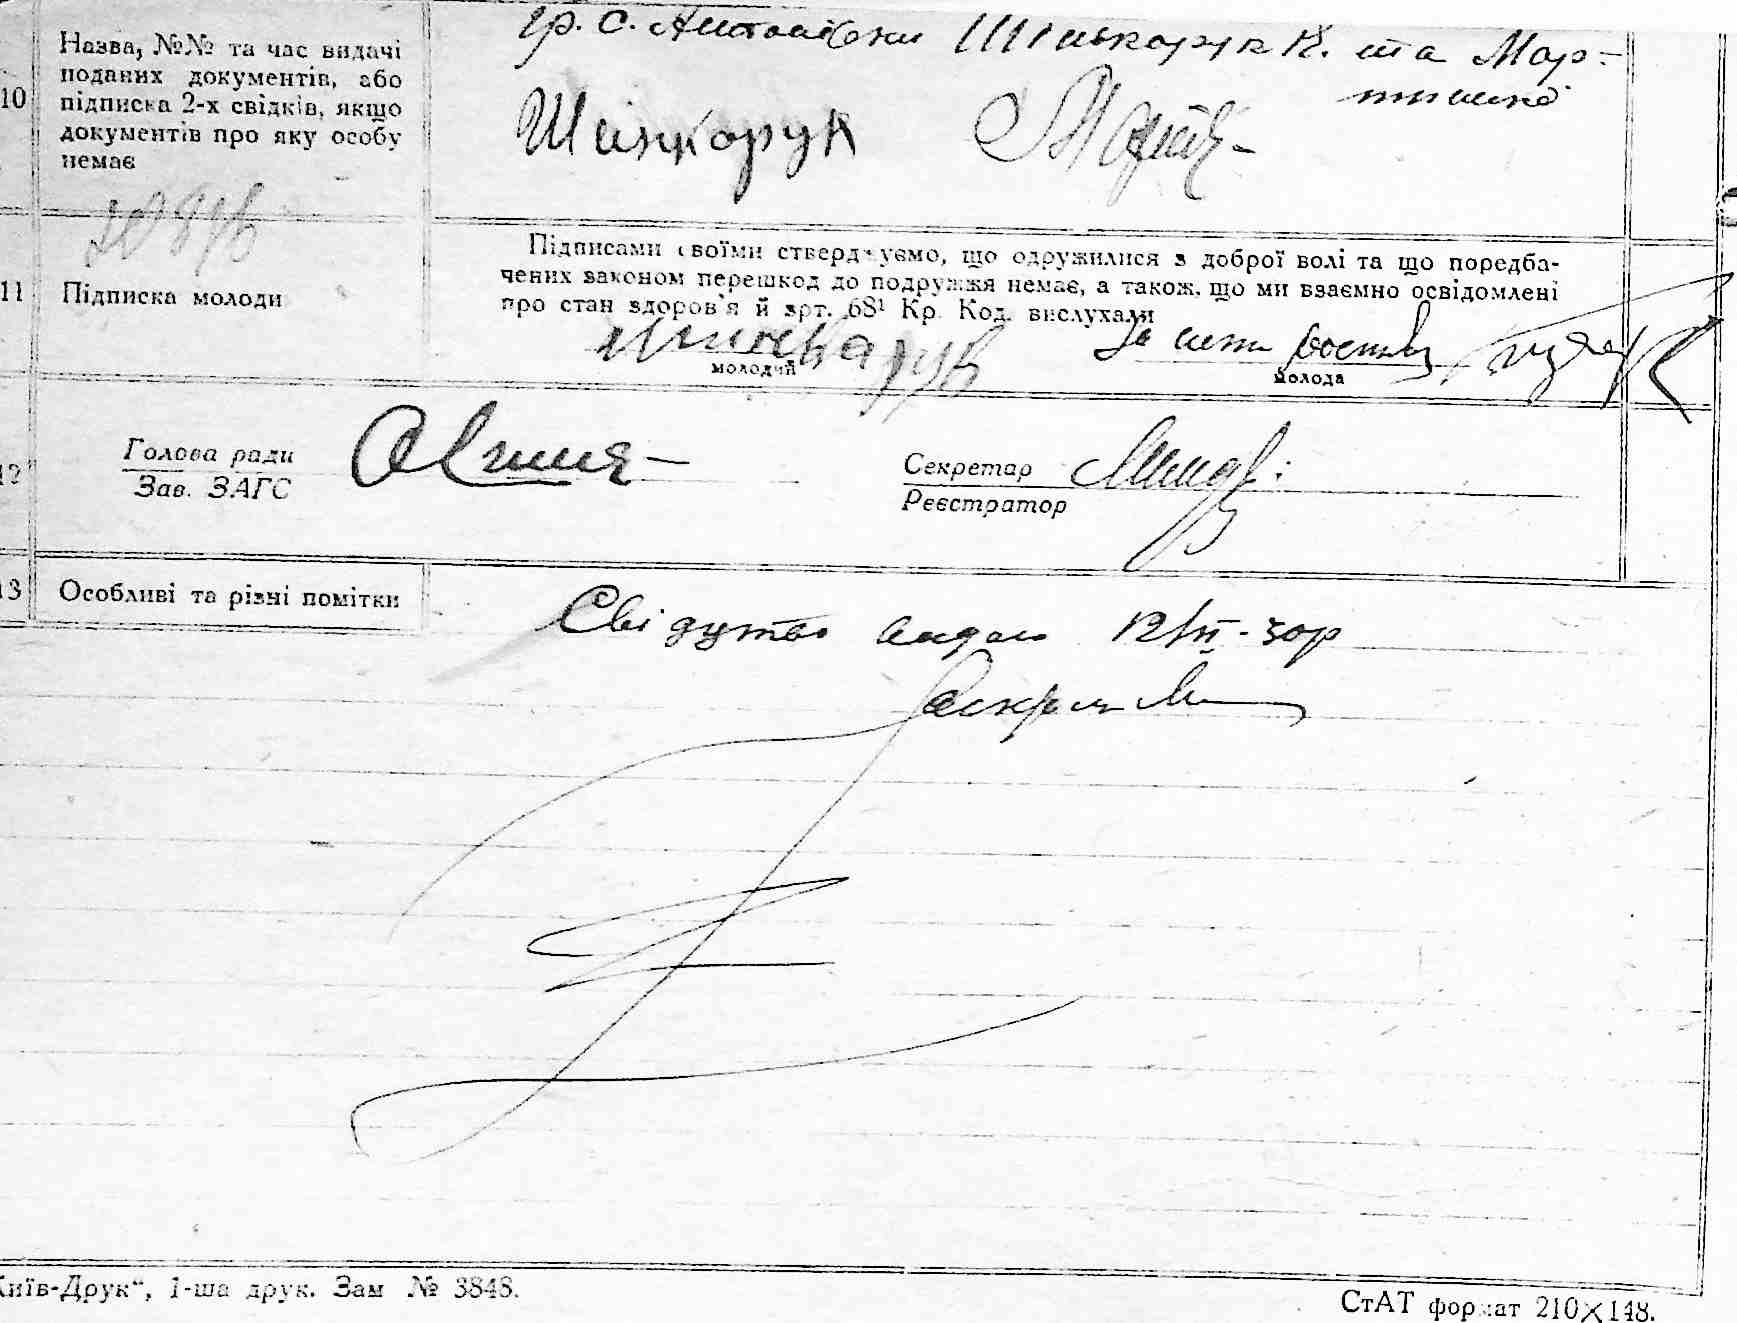 гр. с. Антонівки Шинкарук К. та Мар-
10 Назва, №№ та час видачі
поданих документів, або
підписка 2-х свідків, якщо
документів про яку особу
немає
Шинкорук
11 Підписка молоди
Підписами своїми стверджуємо, що одружилися з доброї волі та що поредба-
чених законом перешкод до подружжя немає, а також, що ми взаємно освідомлені
про стан здоров'я й арт. 68¹ Кр. Код. вислухали
молодий
молода
12 Голова ради
Зав. ЗАГС
Секретар
Реєстратор
13 Особливі та різні помітки
Свідутво видано 12/II-зор
Київ-Друк“, 1-ша друк. Зам № 3848.
СтАТ формат 210×148.